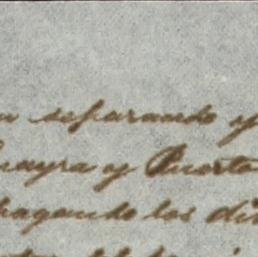 separando y
Guayra y Puerto
pagando los di